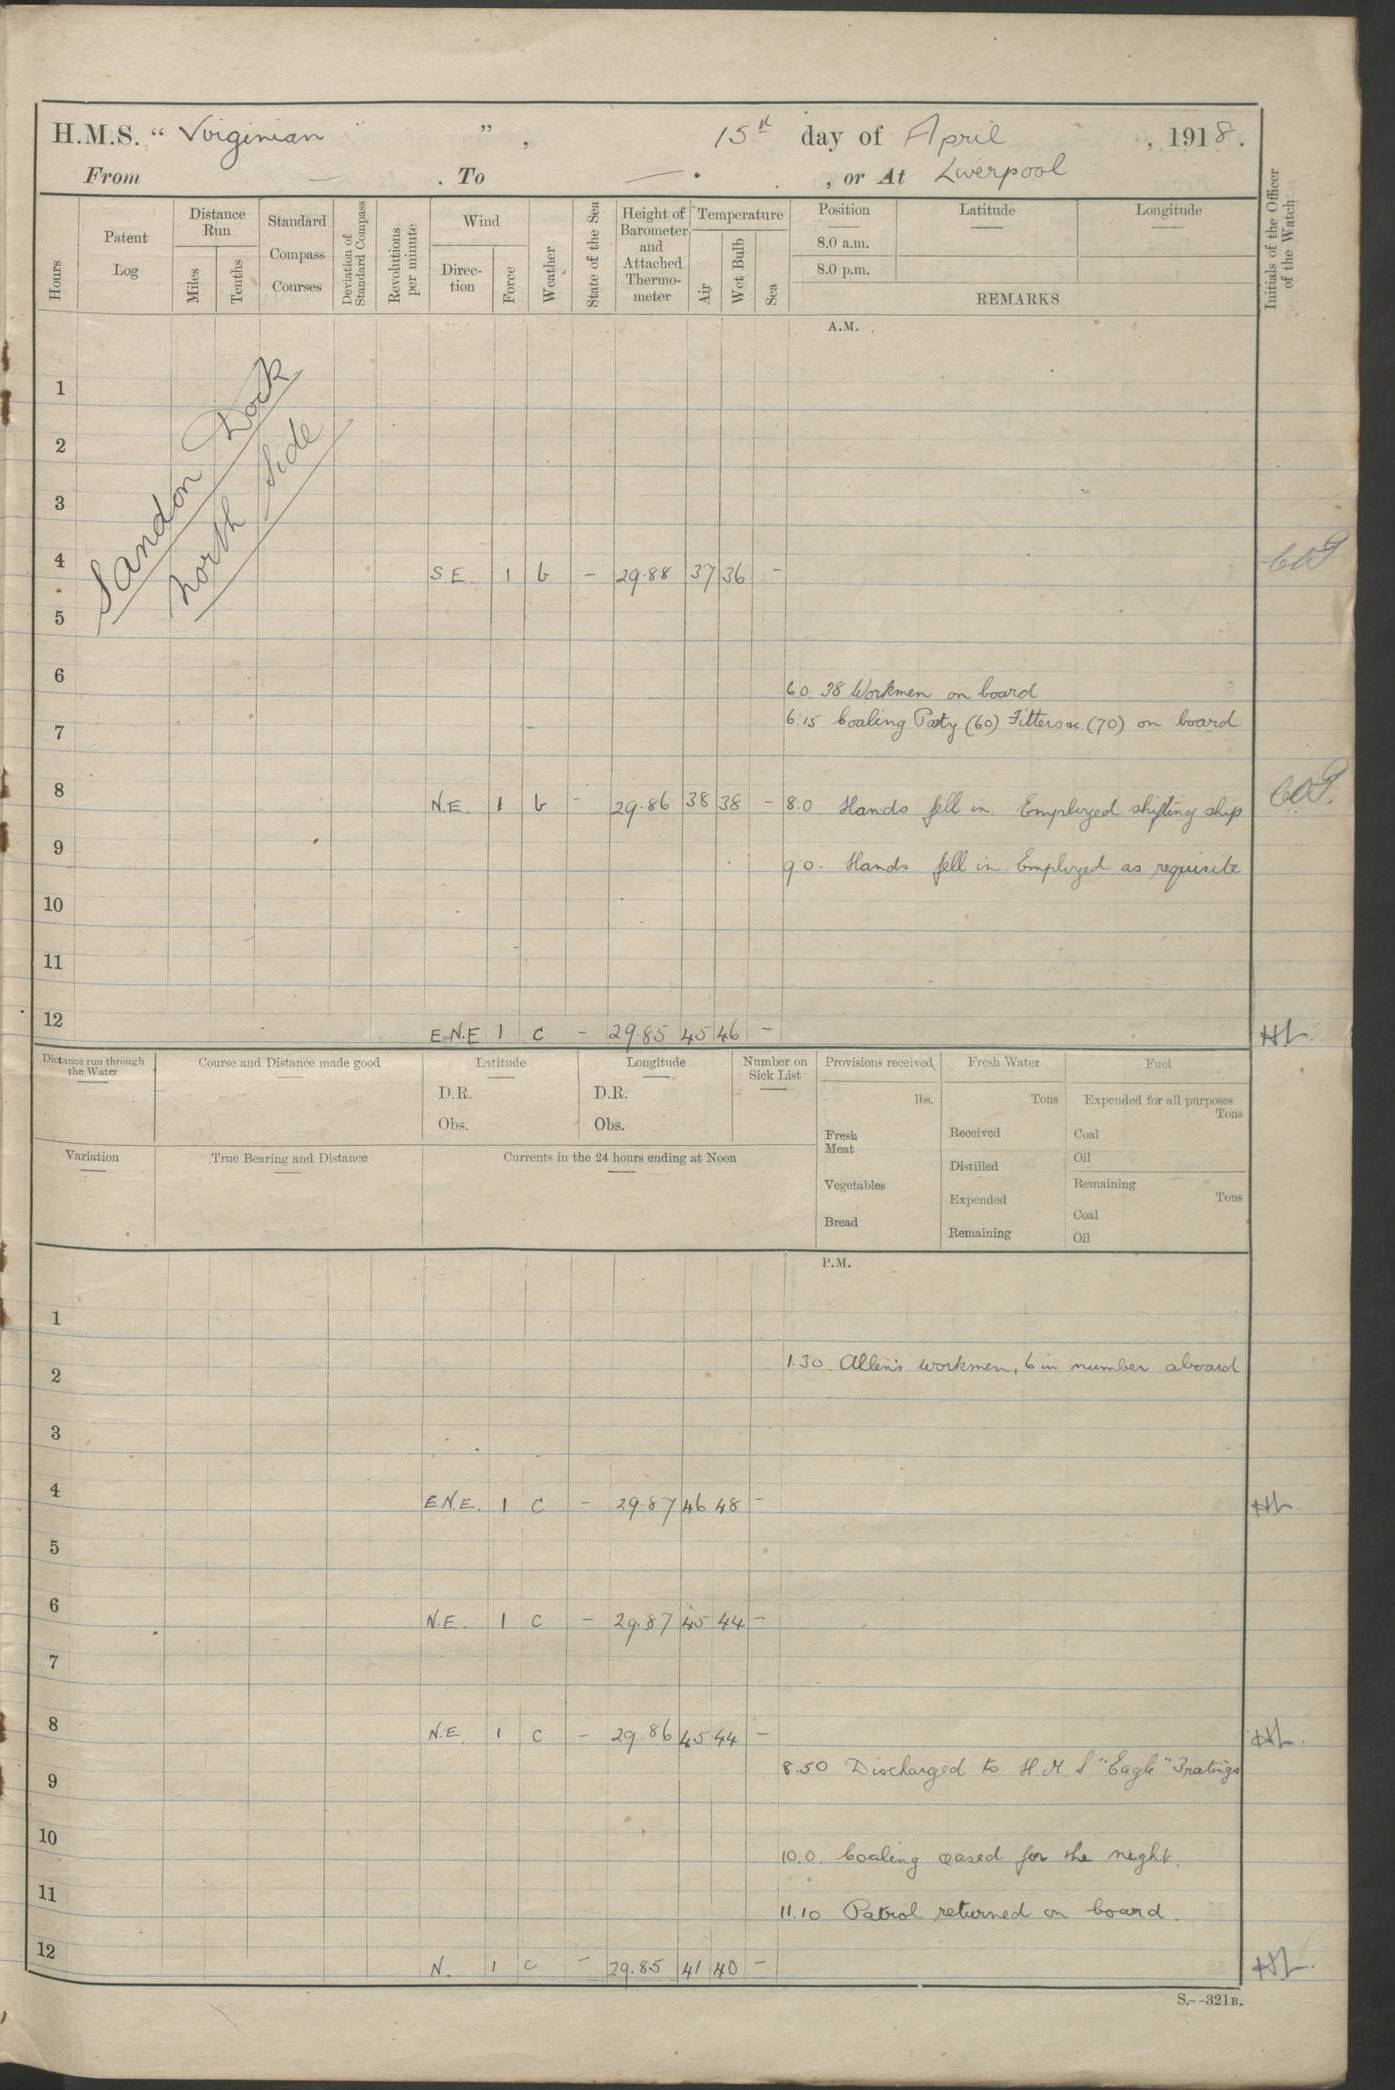 H.M.S. “ Virginian ” , 15th day of April , 1918.
From — . To — . , or At Liverpool
Hours
Patent Log
Distance Run
Miles
Tenths
Standard Compass Courses
Deviation of Standard Compass
Revolutions per minute
Wind
Direction
Force
Weather
State of the Sea
Height of Barometer and Attached Thermometer
Temperature
Air
Wet Bulb
Sea
Position
8.0 a.m.
8.0 p.m.
Latitude
Longitude
REMARKS
Initials of the Officer of the Watch
A.M.
Sandon Dock
North Side
1
2
3
4 S.E. 1 b – 29.88 37 36 –
5
6
6.0. 38 Workmen on board
6.15 Coaling Party (60) Fitters &c (70) on board
7
8 N.E. 1 b – 29.86 38 38 – 8.0 Hands fell in. Employed shifting ship
9
9.0. Hands fell in. Employed as requisite
10
11
12 E.N.E 1 c – 29.85 45 46 – HL
Distance run through the Water
Course and Distance made good
Latitude
D.R.
Obs.
Longitude
D.R.
Obs.
Number on Sick List
Provisions received,
lbs.
Fresh Meat
Vegetables
Bread
Fresh Water
Tons
Received
Distilled
Expended
Remaining
Fuel
Expended for all purposes
Tons
Coal
Oil
Remaining
Tons
Coal
Oil
Variation
True Bearing and Distance
Currents in the 24 hours ending at Noon
P.M.
1
1.30. Allen's workmen, 6 in number aboard
2
3
4 E.N.E. 1 c – 29.87 46 48 – HL
5
6 N.E. 1 c – 29.87 45 44 –
7
8 N.E. 1 c – 29.86 45 44 – HL
8.50 Discharged to H.M.S "Eagle" 3 ratings
9
10
10.0. Coaling ceased for the night.
11
11.10 Patrol returned on board.
12 N. 1 c – 29.85 41 40 – HL
S.--321B.